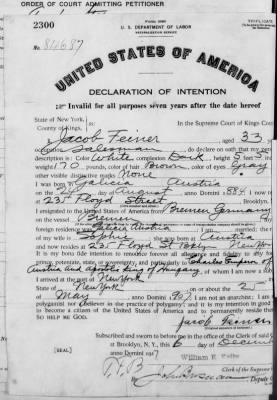 ORDER OF COURT ADMITTING PETITIONER
2300
U. S. DEPARTMENT OF LABOR
NATURALIZATION SERVICE
TRIPLICATE
No.
UNITED STATES OF AMERICA
DECLARATION OF INTENTION
Invalid for all purposes seven years after the date hereof
State of New York,
County of Kings, In the Supreme Court of Kings
I, Jacob Feiner aged 33
occupation Salesman, do declare on oath that my
description is: Color White, complexion Dark, height 5 feet
weight 170 pounds, color of hair Brown, color of eyes Gray
other visible distinctive marks None
I was born in Galicia Austria
on the day of August, anno Domini 1884, I now
at 235 Floyd Street, Brooklyn,
I emigrated to the United States of America from Bremen Germany
on the vessel Bremen
foreign residence was Galicia Austria
of my wife is Sophie; she was born in Austria
and now resides at 235 Floyd St Bklyn New
It is my bona fide intention to renounce forever all allegiance and fidelity to any
prince, potentate, state, or sovereignty, and particularly to Charles Emperor of
Austria and Apostolic King of Hungary, of whom I am now a
I arrived at the port of New York
State of New York on or about the 25
May, anno Domini 1907; I am not an anarchist; I am
polygamist nor a believer in the practice of polygamy; and it is my intention in good
to become a citizen of the United States of America and to permanently reside
SO HELP ME GOD.
Jacob Feiner
Subscribed and sworn to before me in the office of the Clerk of said
at Brooklyn, N. Y., this 6 day December
[SEAL] anno Domini 1917
William F.
Clerk of the Supreme
Deputy